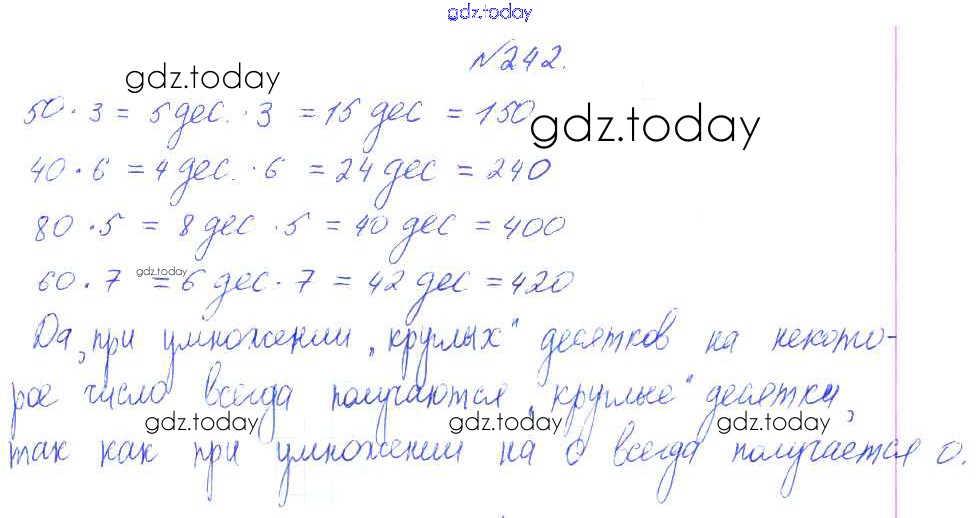 gdz.today
№242.
gdz.today
50 · 3 = 5 дес. · 3 = 15 дес = 150
gdz.today
40 · 6 = 4 дес. · 6 = 24 дес = 240
80 · 5 = 8 дес · 5 = 40 дес = 400
60 · 7 = 6 дес · 7 = 42 дес = 420
gdz.today
Да, при умножении „круглых“ десятков на некото-
рое число всегда получаются „круглые“ десятки,
gdz.today gdz.today gdz.today
так как при умножении на 0 всегда получается 0.